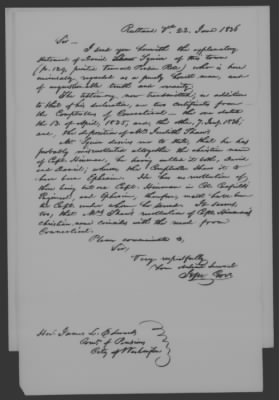 Rutland Vt. 23. Jan'y 1836
Sir—
I send you herewith the explanatory
statement of David Squier of this town
(p. 120, printed Vermont Pension Roll) who is here
universally regarded as a purely honest man, and
of unquestionable truth and veracity.
The testimony, now transmitted, in addition
to that of his declaration, is two certificates from the
Comptroller of Connecticut — the one dated
the 13. of April, 1835; and the other, 7. Jany 1836;
and, the deposition of Mrs Judith Shaw.
Mr Squier desires me to state, that he has
probably misrecollected altogether the christian name
of Capt. Hinman, he having called it both, David
and Daniel, whereas, the Comptroller shows it to
have been Ephraim. He has no recollection of
there being but one Capt. Hinman in Col. Enos's
Regiment, and Ephraim, therefore, must have been
the Capt. under whom he served. It seems,
too, that Mrs Shaw's recollection of Capt. Hinman's
christian name coincides with the record from
Connecticut.
Please communicate to,
Sir,
Very respectfully,
Your obedient servant
Hon. James L. Edwards,
Com'r of Pensions
City of Washington